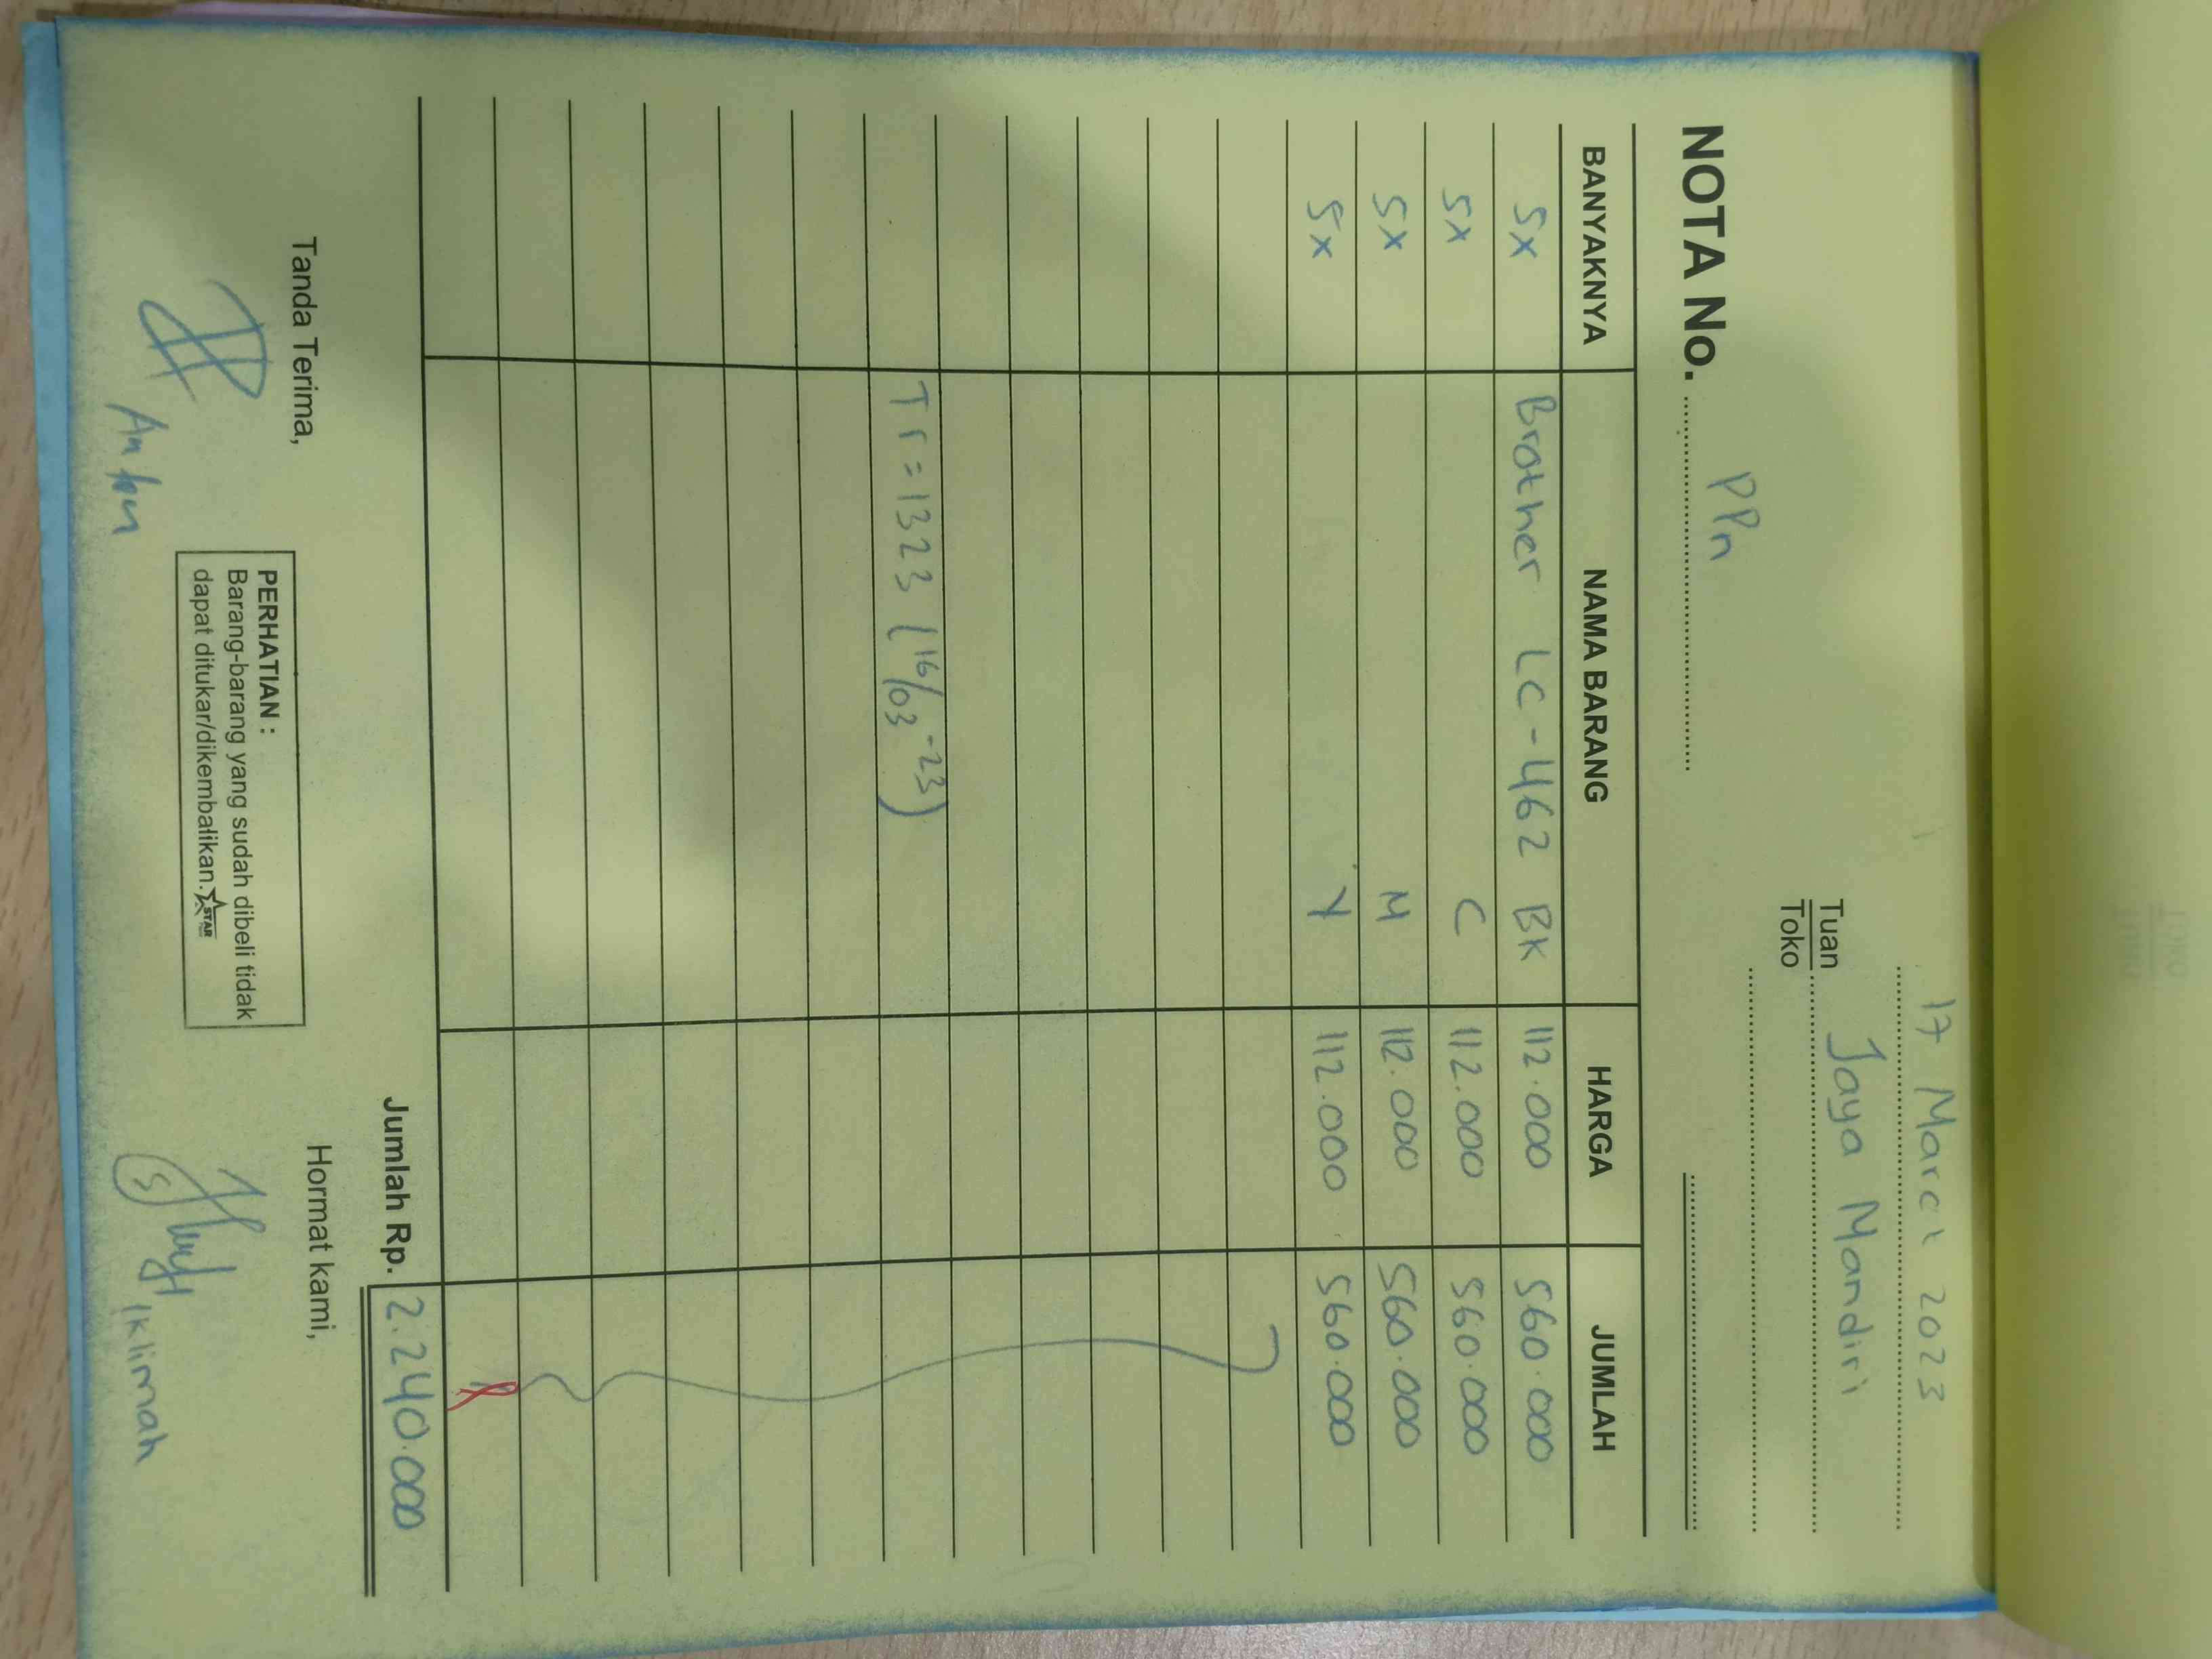 17 March 2023
Tuan Jaya Mandiri
Toko
PPn
NOTA No.
BANYAKNYA NAMA BARANG HARGA JUMLAH
5x Brother LC-462 BK 112.000 560.000
5x C 112.000 560.000
5x M 112.000 560.000
5x Y 112.000 560.000
Tr = 1323 (16/03-23)
Jumlah Rp. 2.240.000
Tanda Terima, Hormat kami,
PERHATIAN :
Barang-barang yang sudah dibeli tidak
dapat ditukar/dikembalikan. STAR
Iklimah